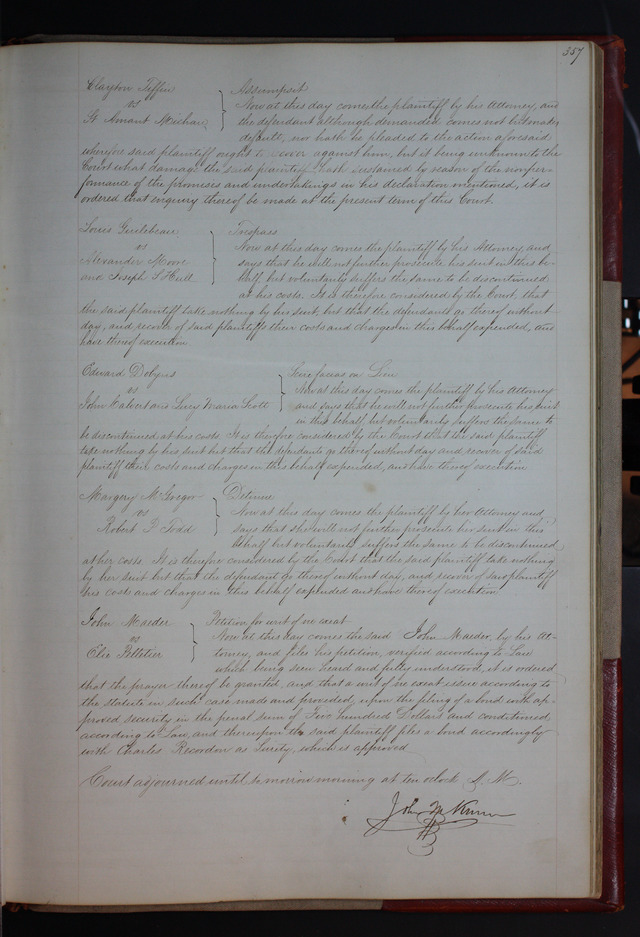 357
Clayton Tiffin
vs
St Amant Michau
Assumpsit
Now at this day comes the plaintiff by his Attorney, and
the defendant although demanded comes not but makes
default, nor hath he pleaded to the action aforesaid
wherefore said plaintiff ought to recover against him, but it being unknown to the
Court what damage the said plaintiff hath sustained by reason of the nonper-
formance of the promises and undertakings in his declaration mentioned, it is
ordered that enquiry thereof be made at the present term of this Court.
Louis Guilebeau
vs
Alexander Moore
and Joseph S Hull
Trespass
Now at this day comes the plaintiff by his Attorney, and
says that he will not further prosecute his suit on this be-
half, but voluntarily suffers the same to be discontinued
at his costs. It is therefore considered by the Court, that
the said plaintiff take nothing by his suit, but that the defendants go thereof without
day, and recover of said plaintiff their costs and charges in this behalf expended, and
have thereof execution
Edward Dobyns
vs
John Calvert and Lucy Maria Scott
Scire facias on Lien
Now at this day comes the plaintiff by his Attorney
and says that he will not further prosecute his suit
in this behalf, but voluntarily suffers the same to
be discontinued at his costs. It is therefore considered by the Court that the said plaintiff
take nothing by his suit but that the defendants go thereof without day and recover of said
plaintiff their costs and charges in this behalf expended, and have thereof execution
Margery McGregor
vs
Robert P Todd
Detinue
Now at this day comes the plaintiff by her Attorney and
says that she will not further prosecute her suit in this
behalf but voluntarily suffers the same to be discontinued
at her costs. It is therefore considered by the Court that the said plaintiff take nothing
by her suit but that the defendant go thereof without day, and recover of said plaintiff
his costs and charges in this behalf expended and have thereof execution
John Maeder
vs
Elie Pelletier
Petition for writ of ne exeat
Now at this day comes the said John Maeder, by his At-
torney, and files his petition, verified according to Law
which being seen heard and fully understood, it is ordered
that the prayer thereof be granted, and that a writ of ne exeat issue according to
the statute in such case made and provided, upon the filing of a bond with ap-
proved security in the penal sum of Two hundred Dollars and conditioned
according to Law, and thereupon the said plaintiff files a bond accordingly
with Charles Reardon as Surety, which is approved
Court adjourned until tomorrow morning at ten o'clock A. M.
John M